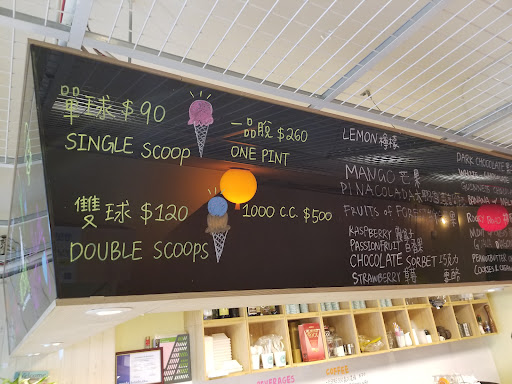 單球 $90
SINGLE SCOOP
一品脫 $260
ONE PINT
雙球 $120
DOUBLE SCOOPS
1000 C.C. $500
LEMON 檸檬
MANGO 芒果
PINACOLADA
FRUITS of FOREST
RASPBERRY
PASSIONFRUIT 百香果
CHOCOLATE SORBET 巧克力
STRAWBERRY 草莓
DARK CHOCOLATE
ROCKY ROAD
PEANUTBUTTER
COOKIES & CREAM
BEVERAGES
COFFEE